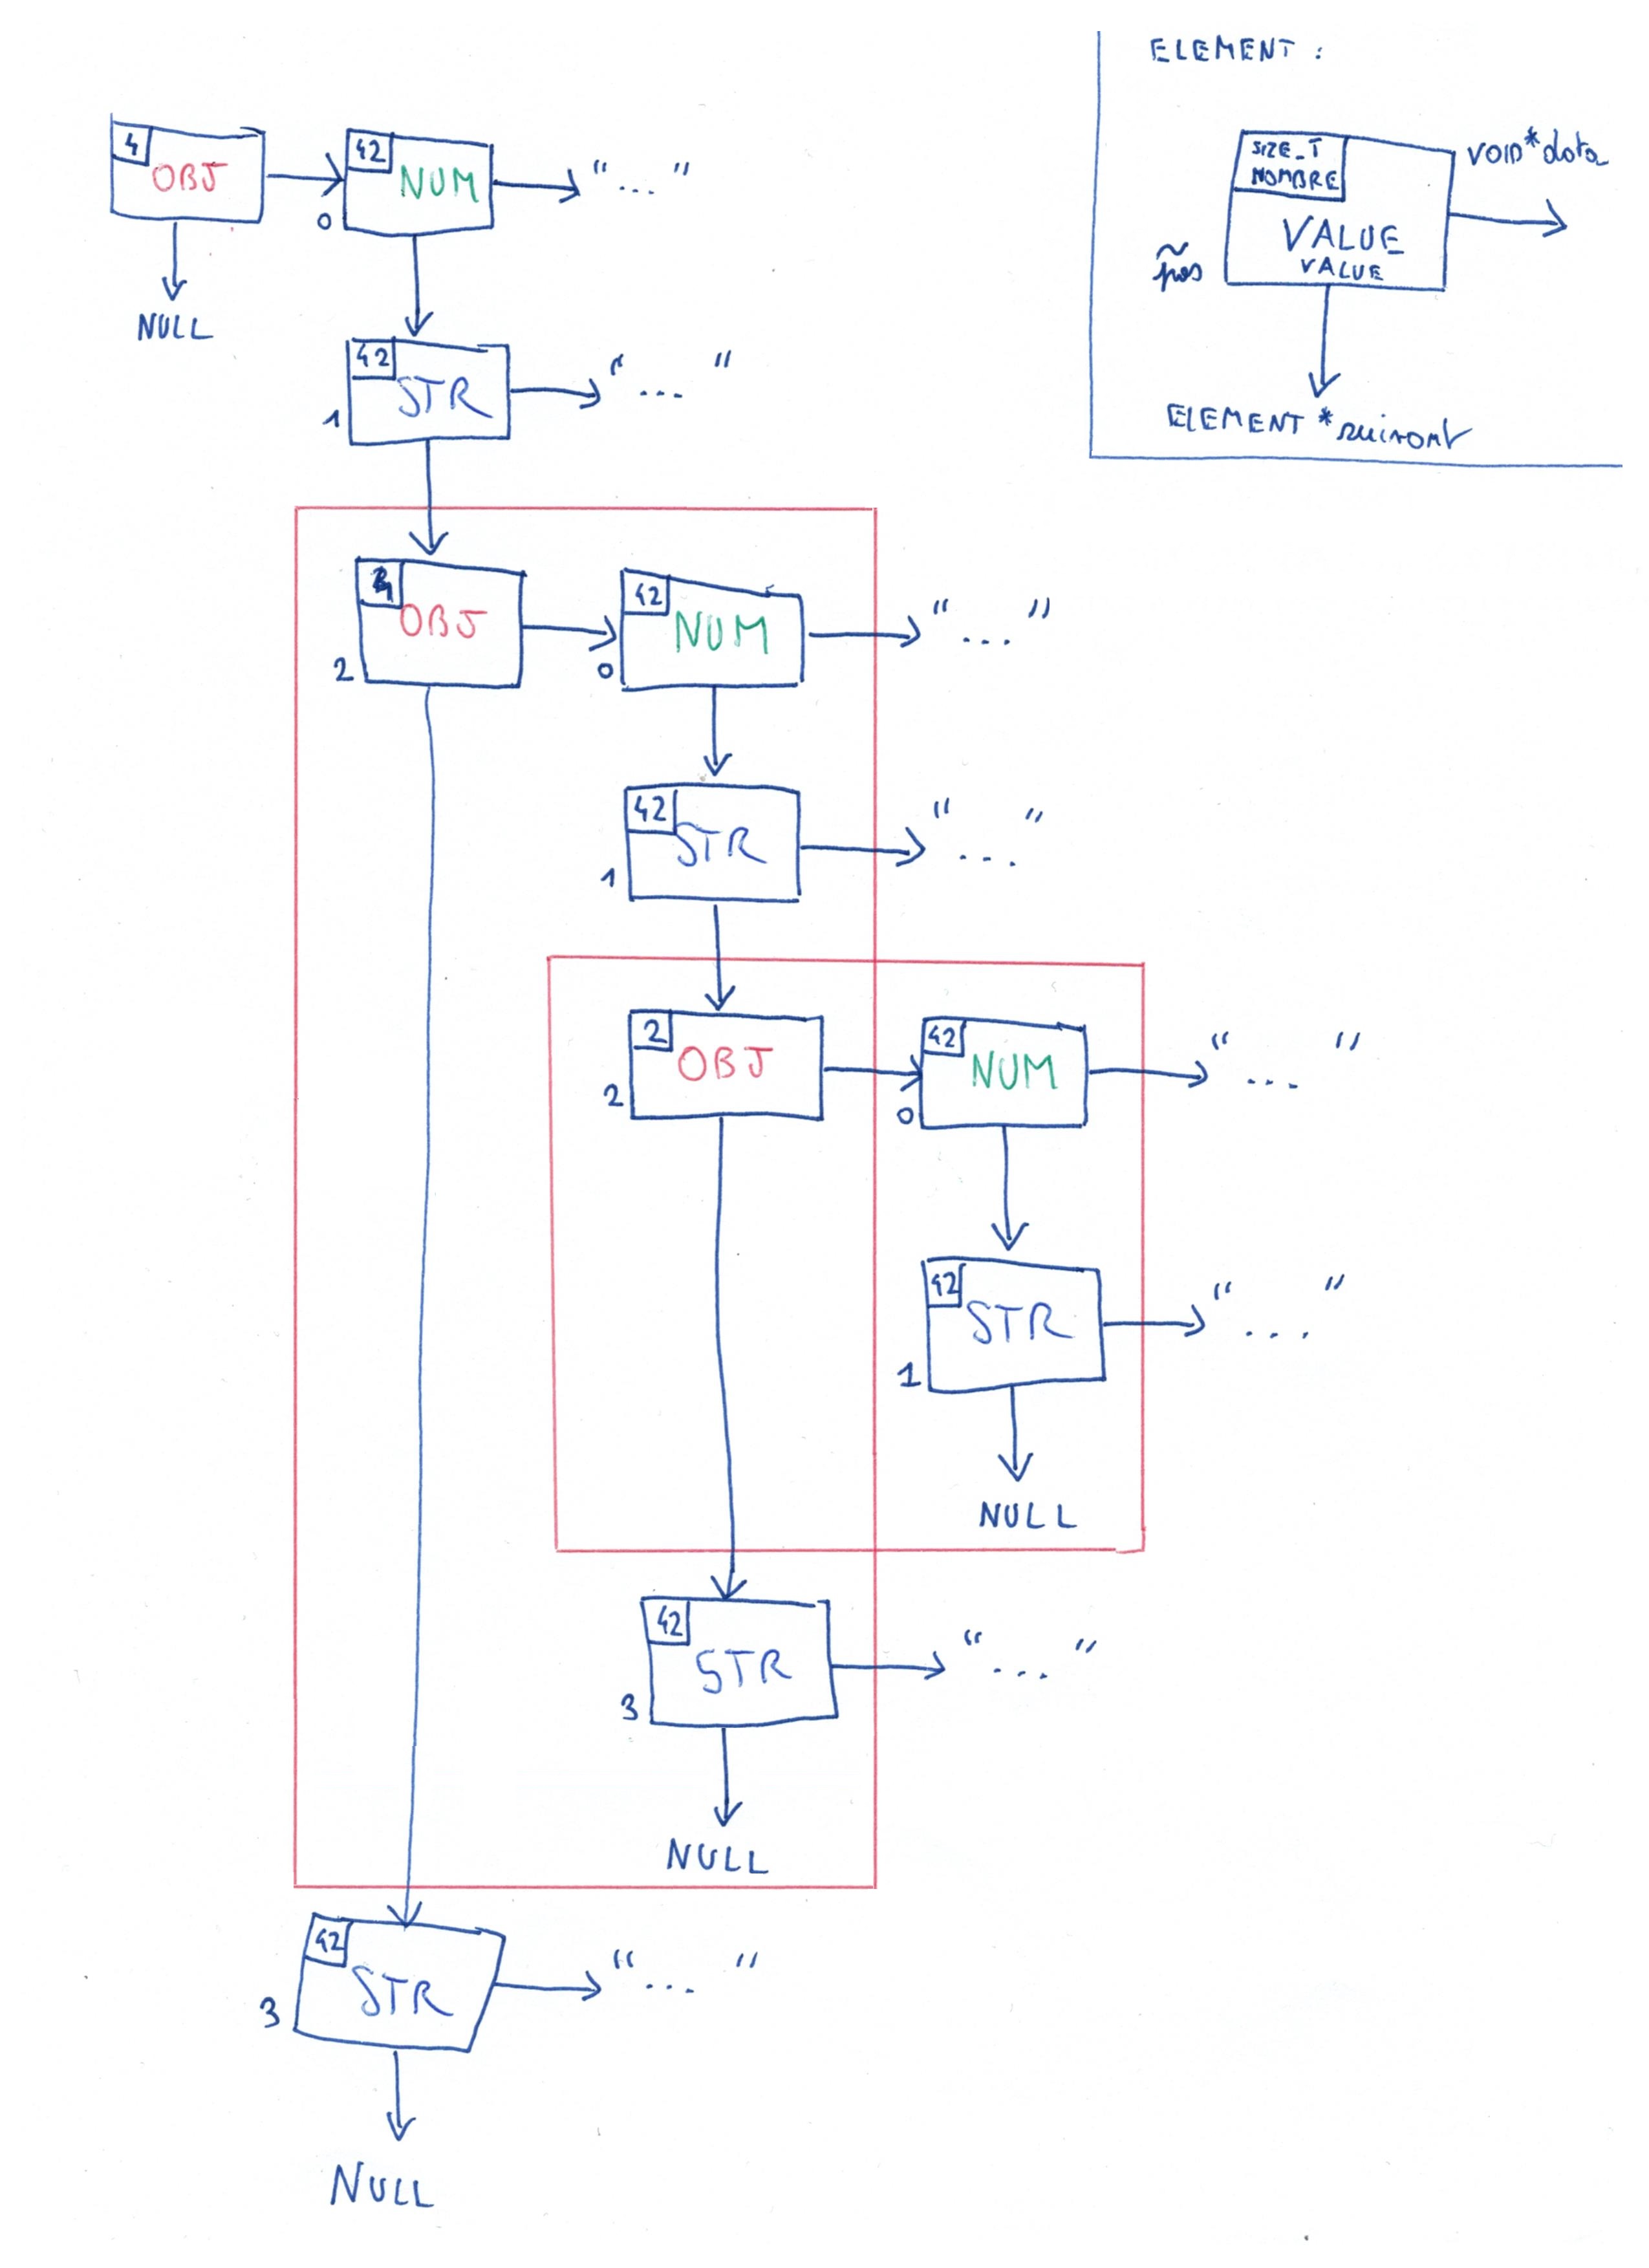 ELEMENT :
SIZE_T
NOMBRE
VOID* data
VALUE
VALUE
~pos
ELEMENT * suivant
4
OBJ
42
NUM
"..."
0
NULL
42
STR
"..."
1
OBJ
2
42
NUM
"..."
0
42
STR
"..."
1
2
OBJ
2
42
NUM
"..."
0
42
STR
"..."
1
NULL
42
STR
"..."
3
NULL
42
STR
"..."
3
NULL